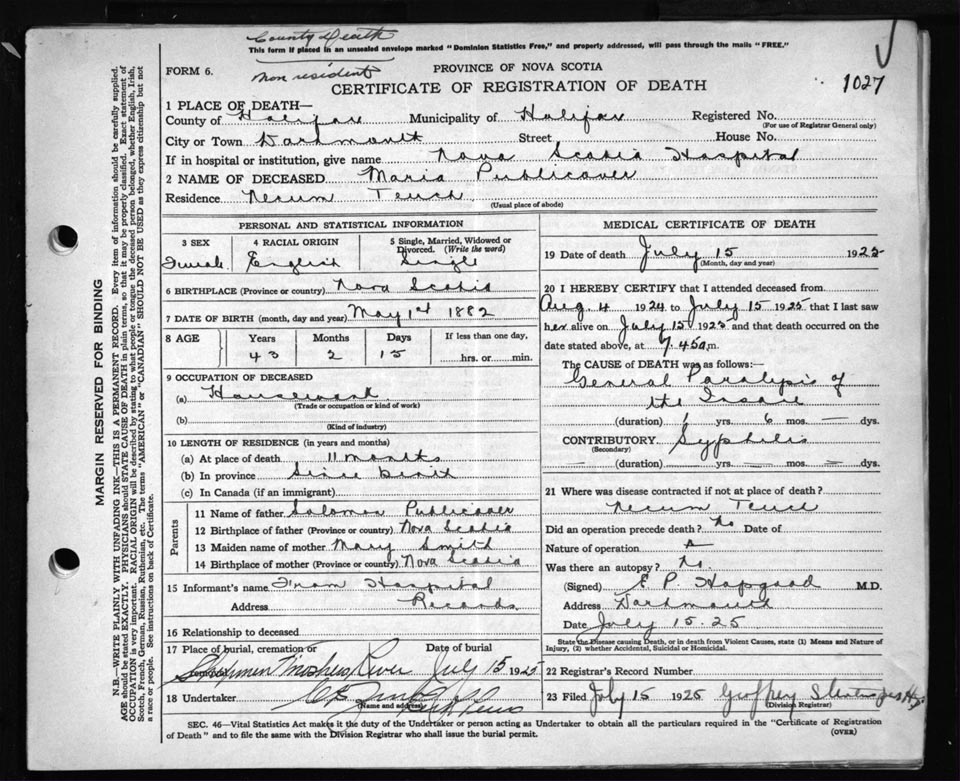 County Death
This form if placed in an unsealed envelope marked "Dominion Statistics Free," and properly addressed, will pass through the mails "FREE."
FORM 6.
non resident
PROVINCE OF NOVA SCOTIA
CERTIFICATE OF REGISTRATION OF DEATH
1027
1 PLACE OF DEATH—
County of Halifax Municipality of Halifax Registered No.
(For use of Registrar General only)
City or Town Dartmouth Street House No.
If in hospital or institution, give name Nova Scotia Hospital
2 NAME OF DECEASED Maria Publicover
Residence Necum Teuch
(Usual place of abode)
PERSONAL AND STATISTICAL INFORMATION
3 SEX 4 RACIAL ORIGIN 5 Single, Married, Widowed or Divorced. (Write the word)
Female English Single
6 BIRTHPLACE (Province or country) Nova Scotia
7 DATE OF BIRTH (month, day and year) May 1st 1882
8 AGE Years Months Days If less than one day,
43 2 15 hrs. or min.
9 OCCUPATION OF DECEASED
(a) Housework
(Trade or occupation or kind of work)
(b)
(Kind of industry)
10 LENGTH OF RESIDENCE (in years and months)
(a) At place of death 11 months
(b) In province Since birth
(c) In Canada (if an immigrant)
Parents
11 Name of father Solomon Publicover
12 Birthplace of father (Province or country) Nova Scotia
13 Maiden name of mother Mary Smith
14 Birthplace of mother (Province or country) Nova Scotia
15 Informant's name From Hospital
Address Records
16 Relationship to deceased
17 Place of burial, cremation or Date of burial
River July 15 1925
18 Undertaker
(Name and address)
MEDICAL CERTIFICATE OF DEATH
19 Date of death July 15 1925
(Month, day and year)
20 I HEREBY CERTIFY that I attended deceased from
Aug 4 1924 to July 15 1925 that I last saw
her alive on July 15 1925 and that death occurred on
date stated above, at 7.45 a m.
The CAUSE of DEATH was as follows:—
General Paralysis of
the Insane
(duration) 1 yrs. 6 mos. — dys.
CONTRIBUTORY Syphilis
(Secondary)
— (duration) — yrs. — mos. — dys.
21 Where was disease contracted if not at place of death?
Necum Teuch
Did an operation precede death? No Date of
Nature of operation
Was there an autopsy? No
(Signed) E. P. Hapgood M.D.
Address Dartmouth
Date July 15.25
State the Disease causing Death, or in death from Violent Causes, state (1) Means and Nature of Injury, (2) whether Accidental, Suicidal or Homicidal.
22 Registrar's Record Number
23 Filed July 15 1925 Geoffrey
(Division Registrar)
SEC. 46—Vital Statistics Act makes it the duty of the Undertaker or person acting as Undertaker to obtain all the particulars required in the "Certificate of Registration
of Death" and to file the same with the Division Registrar who shall issue the burial permit.
(OVER)
MARGIN RESERVED FOR BINDING
N.B.—WRITE PLAINLY WITH UNFADING INK—THIS IS A PERMANENT RECORD. Every item of information should be carefully supplied.
AGE should be stated EXACTLY. PHYSICIANS should STATE CAUSE OF DEATH in plain terms, so that it may be properly classified. Exact statement of
OCCUPATION is very important. RACIAL ORIGIN will be described by stating to what people or tongue the deceased person belonged, whether English, Irish,
Scotch, French, German, Russian, Ruthenian, etc. The terms "AMERICAN" or "CANADIAN" SHOULD NOT BE USED as they express citizenship but not
a race or people. See instructions on back of Certificate.